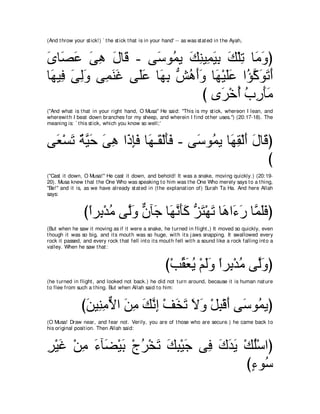 (And throw your stick!) ` the stick that is in your hand'' -- as was stated in the Ayah,
(وَمَا تِلْكَ بِيَمِينِكَ يمُوسَى - قَالَ هِىَ عَصَاىَ
أَتَوَكَّؤُا عَلَيْهَا وَأَهُشُّ بِهَا عَلَى غَنَمِى وَلِىَ فِيهَا
مَأَرِبُ أُخْرَى )
("And what is that in your right hand, O Musa'' He said: "This is my stick, whereon I lean, and
wherewith I beat down branches for my sheep, and wherein I find other uses.'') (20:17-18). The
meaning is: ` this stick, which you know so well;'
(قَالَ أَلْقِهَا يمُوسَى - فَأَلْقَـهَا فَإِذَا هِىَ حَيَّةٌ تَسْعَى
)
("Cast it down, O Musa!'' He cast it down, and behold! It was a snake, moving quickly.) (20:19-
20). Musa knew that the One Who was speaking to him was the One Who merely says to a thing,
"Be!'' and it is, as we have already stated in (the explanation of) Surah Ta Ha. And here Allah
says:
(فَلَمَّا رَءَاهَا تَهْتَزُّ كَأَنَّهَا جَآنٌّ وَلَّى مُدْبِراً)
(But when he saw it moving as if it were a snake, he turned in flight,) It moved so quickly, even
though it was so big, and its mouth was so huge, with its jaws snapping. It swallowed every
rock it passed, and every rock that fell into its mouth fell with a sound like a rock falling into a
valley. When he saw that:
(وَلَّى مُدْبِراً وَلَمْ يُعَقِّبْ)
(he turned in flight, and looked not back.) he did not turn around, because it is human nature
to flee from such a thing. But when Allah said to him:
(يمُوسَى أَقْبِلْ وَلاَ تَخَفْ إِنَّكَ مِنَ الاٌّمِنِينَ)
(O Musa! Draw near, and fear not. Verily, you are of those who are secure.) he came back to
his original position. Then Allah said:
(اسْلُكْ يَدَكَ فِى جَيْبِكَ تَخْرُجْ بَيْضَآءَ مِنْ غَيْرِ
سُوءٍ)